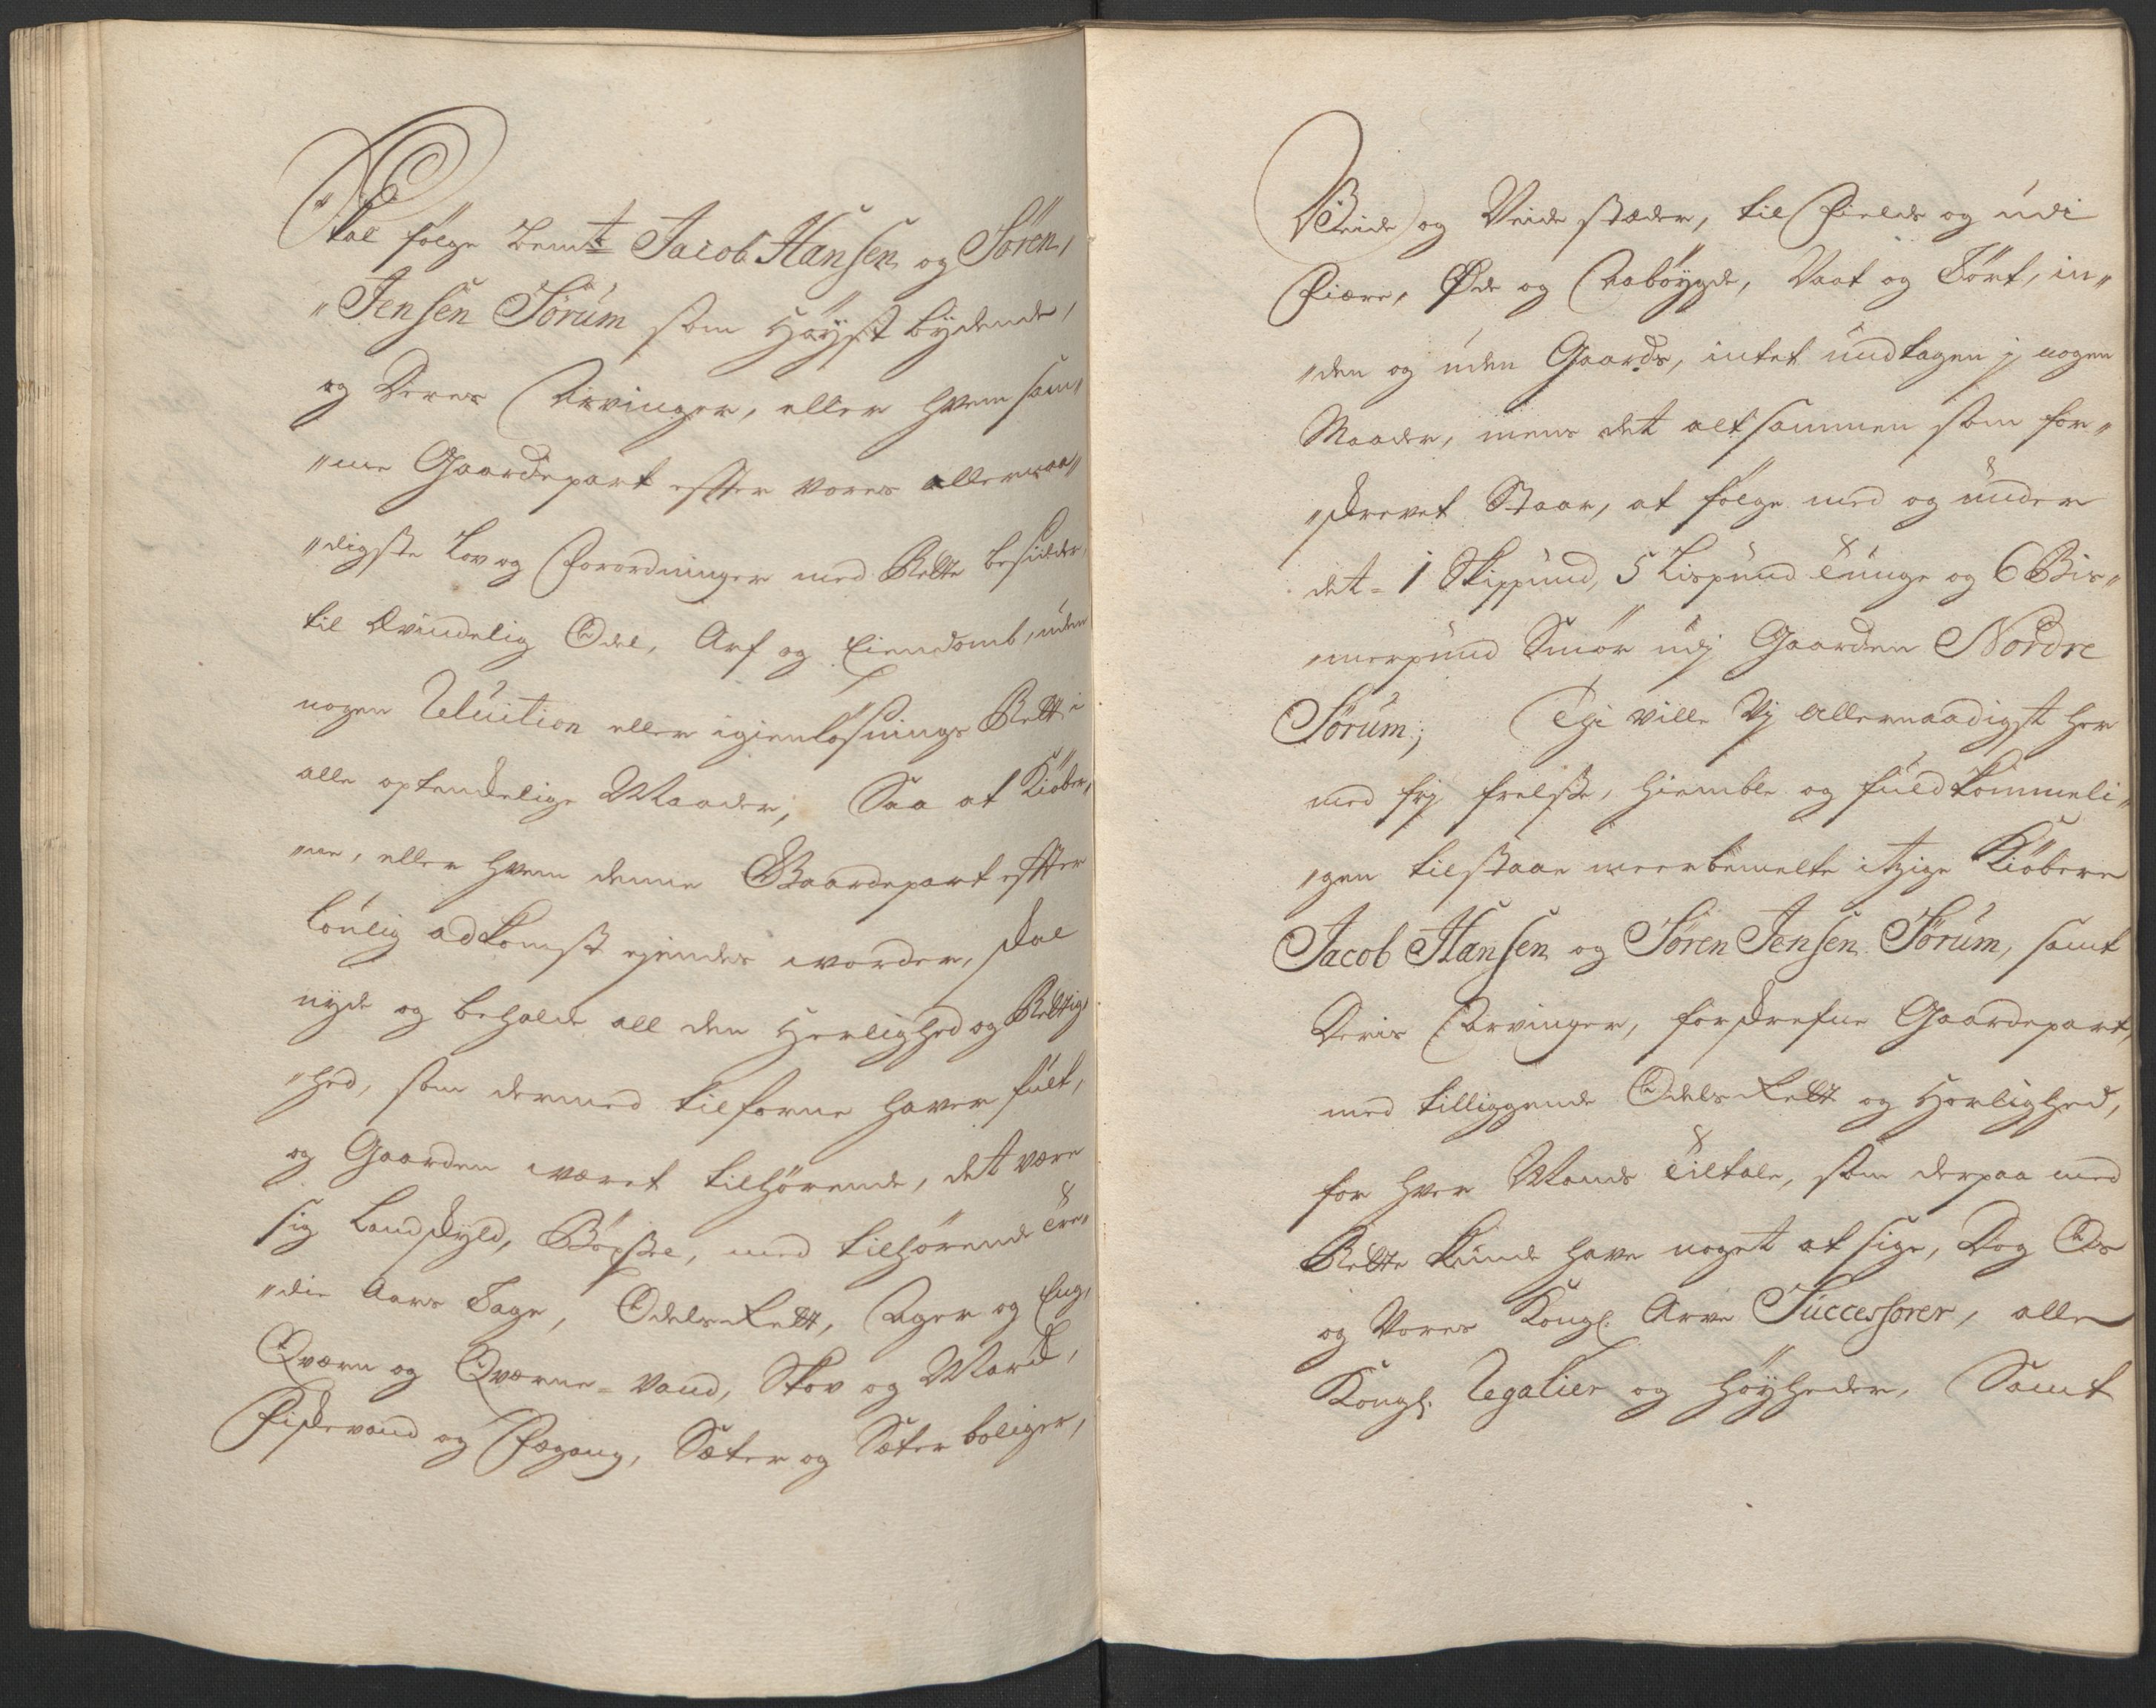 Skal følge bemte Jacob Hansen og Søren,
"Jensen Sørum som Høyst bydende,
og Deres Arvinger, eller hvem sam"
"me Gaardepart efter Vores allernaa"
"digste Lov og Forordninger med Rette besidder,
til Uvindelig Odel, Arf og Eiendomb, uden
nogen Reluition eller igienløsnings Rett i
alle optenkelige Maader, Saa at Kiøber,
"ne, eller hvem denne Gaardepart efter
lovlig adkomst eiendes worder, skal
nyde og beholde all den Herlighed og Rettig,
"hed, som dermed tilforne haver fult,
og Gaarden været tilhørende, det være
sig Landskyld, Bøxsel, med tilhørende Tre"
"die Aars Tage, Odels Rett, Ager og Eng,
Qværn og Qværne-Vand, Skov og Mark,
Fiskevand og Fægang, Sæter og Sæterboliger,
Veide og Veide stæder, til Fields og udi
Fiære, Øde og Aabøygde, Vaat og Tört, in"
"den og uden Gaards, intet undtagen i nogen
Maader, mens det altsammen som for"
"skrevet Staar, at følge med og under
det - 1 Skippund, 5 Lispund Tunge og 6 Bis"
"merpund Smør udj Gaarden Nordre
Sørum; Thi ville Vj allernaadigst her
med frj frelse, hiemble og fuldkommeli"
"gen tilstaae meerbemelte itzige Kiøbere
Jacob Hansen og Søren Jensen Sørum, samt
Deris Arvinger, forskrefne Gaardepart,
med tilliggende Odels Rett og Herlighed,
for hver Mands Tiltale, som derpaa med
Rette kunde have noget at sige, Dog Os
og Vores Kongl. Arve Successorer, alle
Kongl. Regalier og Høyheder, Samt